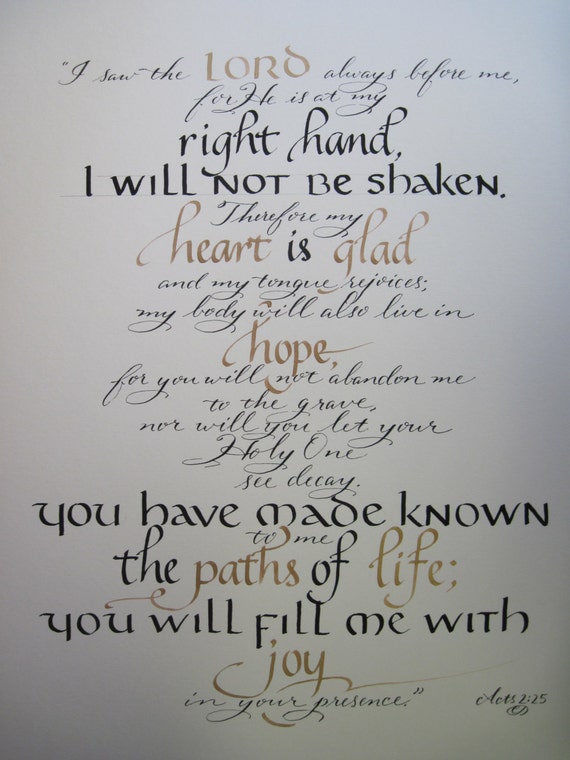 "I saw the LORD always before me,
for He is at my
right hand,
I will not be shaken.
Therefore my
heart is glad
and my tongue rejoices;
my body will also live in
hope,
for you will not abandon me
to the grave,
nor will you let your
Holy One
see decay.
you have made known
to me
the paths of life;
you will fill me with
joy
in your presence."
Acts 2:25